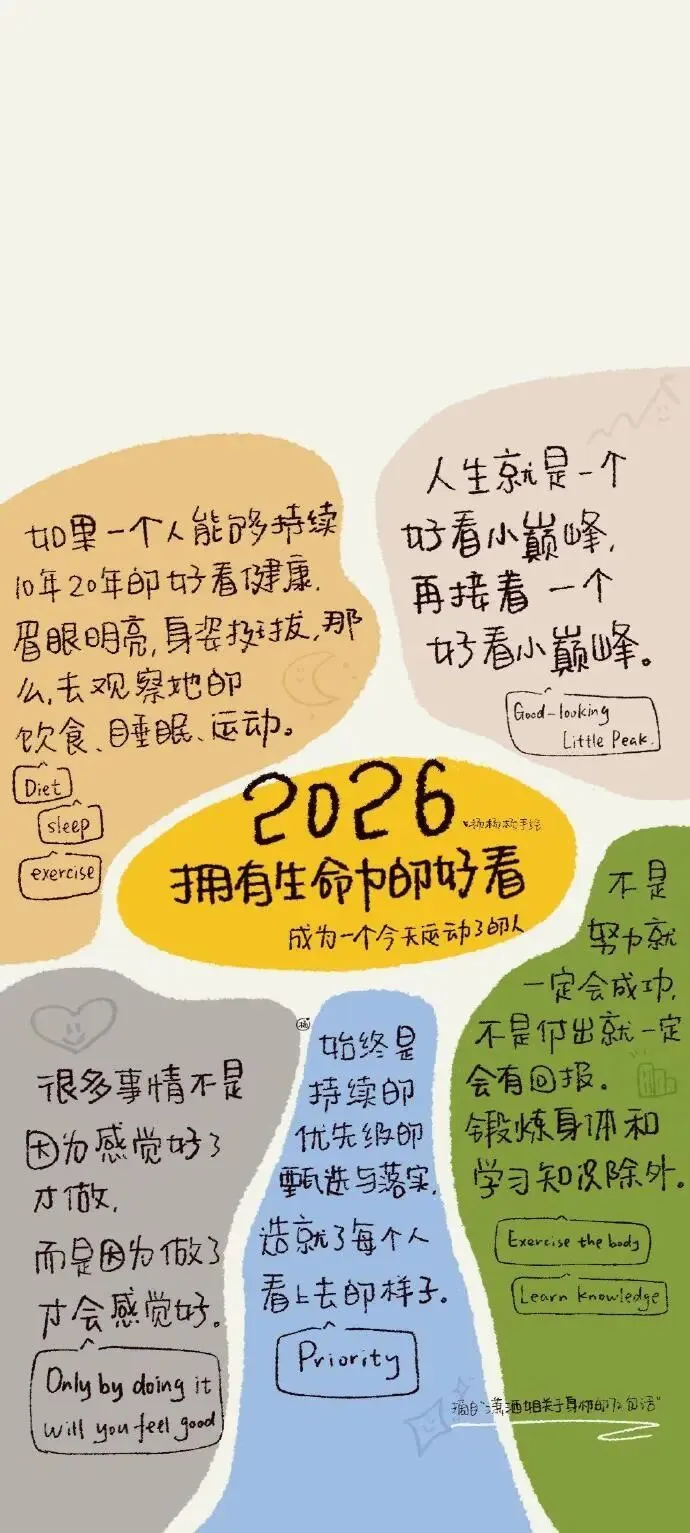 人生就是一个
好看小巅峰,
再接着一个
好看小巅峰。
Good-looking
Little Peak.
如果一个人能够持续
10年20年的好看健康,
眉眼明亮,身姿挺拔,那
么,去观察她的
饮食、睡眠、运动。
Diet
sleep
exercise
2026
拥有生命力的好看
成为一个今天运动了的人
不是
努力就
一定会成功,
不是付出就一定
会有回报。
锻炼身体和
学习知识除外。
Exercise the body
Learn knowledge
很多事情不是
因为感觉好了
才做,
而是因为做了
才会感觉好。
Only by doing it
will you feel good
始终是
持续的
优先级的
甄选与落实,
造就了每个人
看上去的样子。
Priority
摘自"潇洒姐关于身材的72句话"